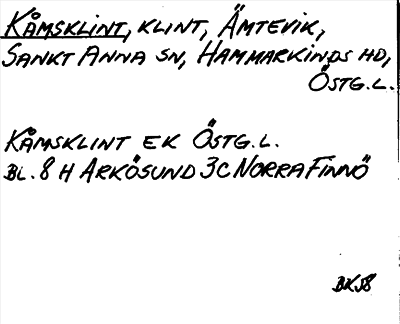 Kåmsklint, klint, Ämtevik,
Sankt Anna sn, Hammarkinds hd,
Östg.l.
Kåmsklint ek Östg.l.
Bl. 8 H Arkösund 3c Norra Finnö